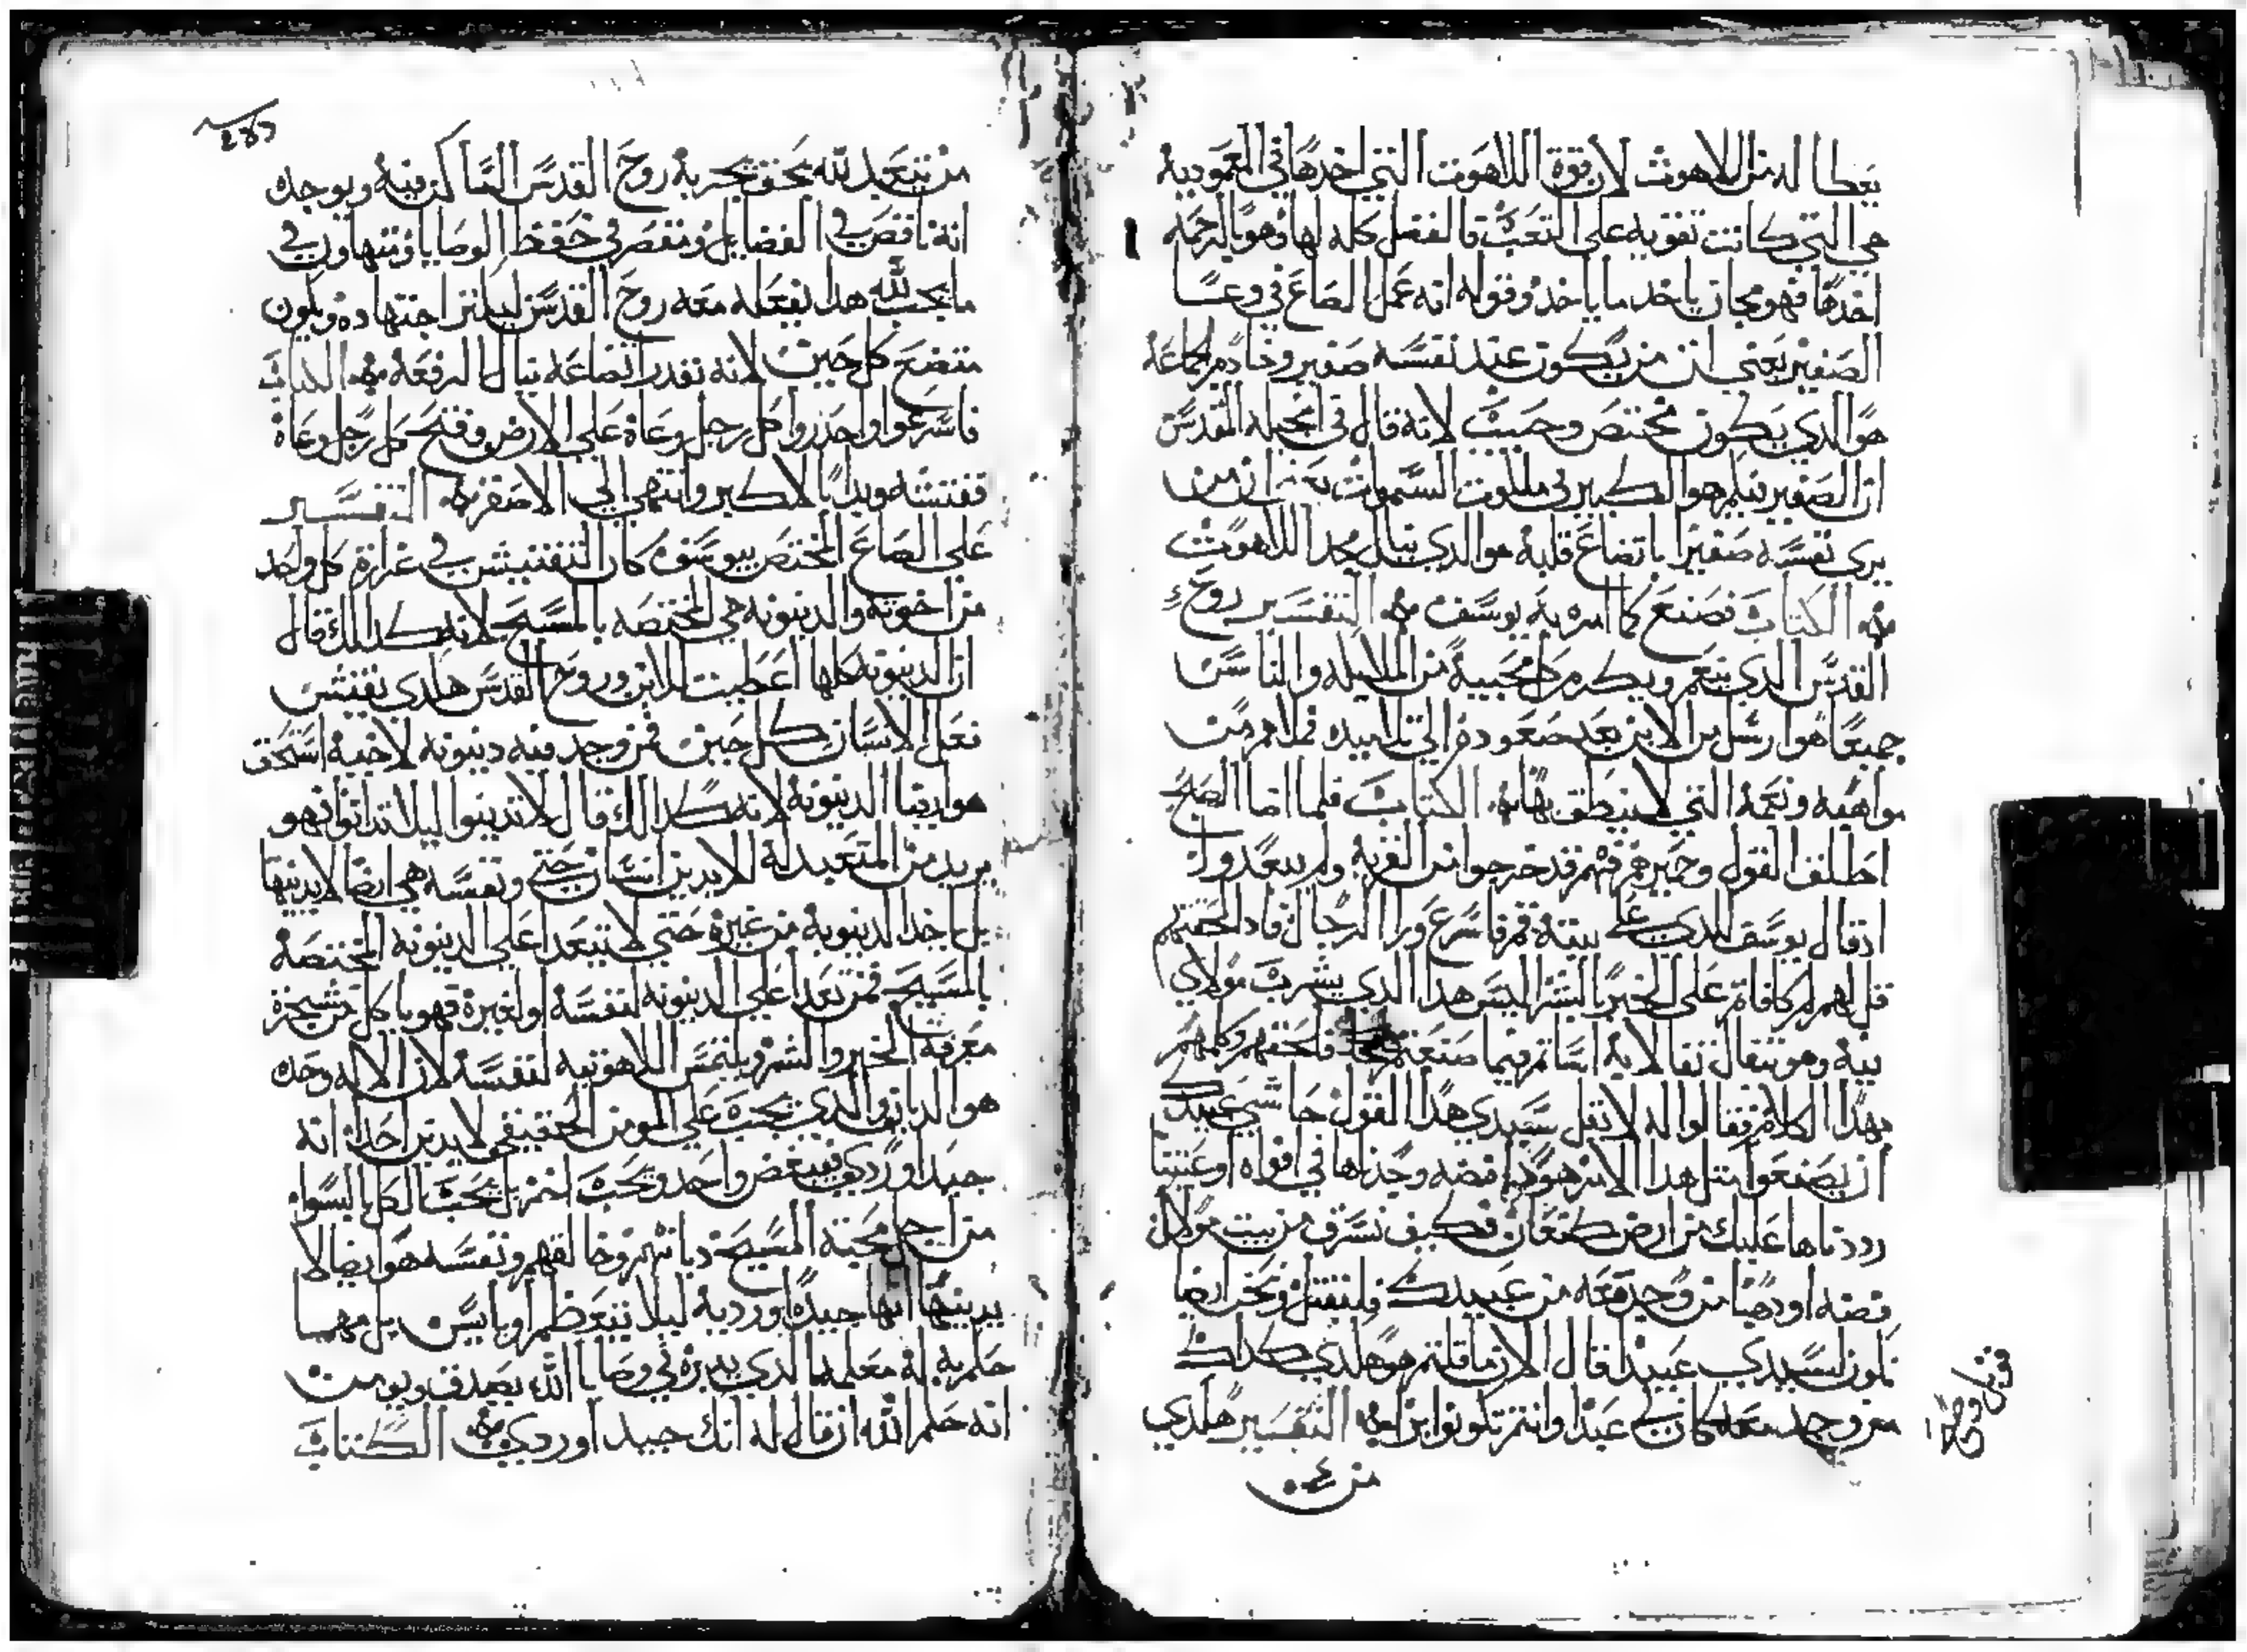 يعطا له من اللاهوت لان قوة اللاهوت التي اخدها في المعمودية
هي التي كانت تقويه على التعب فالفضل كله لها وهو بالرحمه
اخدها فهو مجان ياخد ما ياخد وقوله انه عمل الصاع في وعا
الصغير يعني ان من يكون عند نفسه صغير وخادم الجماعه
هو الدي يكون مختص وحبيب لانه قال في انجيله المقدس
ان الصغير فيكم هو الكبير في ملكوت السموات يعني ان من
يرى نفسه صغيرا باتضاع قلبه هو الدي ينال مجد اللاهوت
الكتاب فصنع كما امره به يوسف التفسير روح
القدس الدي ينعم ويكرم كل محبيه من الملايكه والناس
جميعا هو ارسل من الابن بعد صعوده الى تلاميده فملاهم من
مواهبه ونعمه التي لا ينطق بها الكتاب فلما اضا الصبح
اطلق القول وحميرهم فهم قد خرجوا من القريه ولم يبعدوا
اد قال يوسف للدي على بيته قم فاسرع ورا الرجال فادا لحقتهم
قل لهم لم كافاتم على الخير بالشر اليس هدا الدي يشرب مولاي
فيه وهو يتفال تفالا به اساتم فيما صنعتم فلحقهم وكلمهم
بهدا الكلام فقالوا له لا تقل سيدي هدا القول حاشى عبيدك
ان يصنعوا مثل هدا الامر هودا فضه وجدناها في افواه اوعيتنا
رددناها عليك من ارض كنعان فكيف نسرق من بيت مولاك
فضه او دهبا من وجد معه من عبيدك فليقتل ونحن ايضا
نكون لسيدي عبيدا قال الان ما قلتم هو هكدي كداك
من وجد معه كان لي عبدا وانتم تكونوا ابريا التفسير هكدي
من
من يتعبد لله بحق بحريه روح القدس الساكن فيه ويوجده
انه ناقص في الفضايل ومقصر في حفظ الوصايا ومتهاون في
ما يجب لله هدا يفعله معه روح القدس ليكثر اجتهاده ويكون
متضع كل حين لانه بقدر اتضاعه ينال الرفعه الكتاب
فاسرعوا واحدروا كل رجل وعاه على الارض وفتح كل رجل وعاه
ففتشه وبدا بالاكبر وانتهى الى الاصغر التفسير
على الصاع المختص بيوسف كان التفتيش في غرارة كل واحد
من اخوته والدينونه هي المختصه بالمسيح لانه كدلك قال
ان الدينونه كلها اعطيت للابن وروح القدس هكدي يفتش
فعل الانسان كل حين فمن وجد فيه دينونه لاخيه استحق
هو ايضا الدينونه لانه كدلك قال لا تدينوا ليلا تدانوا فهو
يريد من المتعبد له الا يدين انسان حتى ونفسه هي ايضا لا يدينها
بل ياخد الدينونه من غيره حتى لا يتعدا على الدينونه المختصه
بالمسيح فمن تعدا على الدينونه لنفسه او لغيره فهو ياكل من شجرة
معرفة الخير والشر ويلتمس اللاهوتيه لنفسه لان الاله وحده
هو الديان والدي يجب على المومن الحقيقي لا يدين احدا انه
جيد او ردي فيبغض واحد ويحب اخر بل يحب الكل بالسوا
من اجل محبة المسيح ديانهم وخالقهم ونفسه هو ايضا لا
يدينها انها جيده او رديه ليلا يتعظم او يايس بل مهما
حكم به له معلمه الدي يدبره في وصايا الله يصدق ويومن
انه حكم الله ان قال له انك جيد او ردي الكتاب